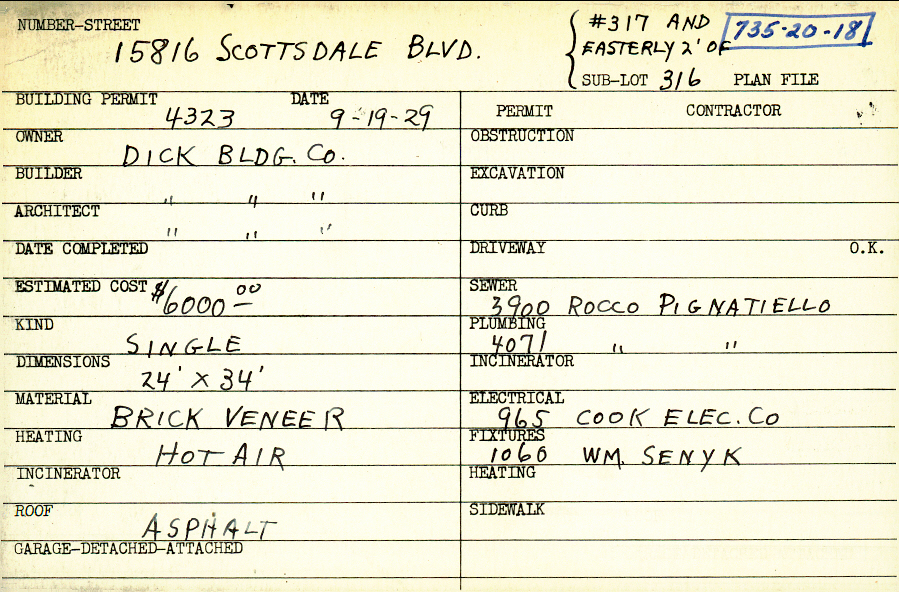 NUMBER-STREET
15816 SCOTTSDALE BLVD.
#317 AND
EASTERLY 2' OF
SUB-LOT 316 PLAN FILE
735-20-18
BUILDING PERMIT DATE
4323 9-19-29
OWNER
DICK BLDG. CO.
BUILDER
" " "
ARCHITECT
" " "
DATE COMPLETED
ESTIMATED COST $6000.00
KIND
SINGLE
DIMENSIONS
24' X 34'
MATERIAL
BRICK VENEER
HEATING
HOT AIR
INCINERATOR
ROOF
ASPHALT
GARAGE-DETACHED-ATTACHED
PERMIT CONTRACTOR
OBSTRUCTION
EXCAVATION
CURB
DRIVEWAY O.K.
SEWER
3900 ROCCO PIGNATIELLO
PLUMBING
4071 " "
INCINERATOR
ELECTRICAL
965 COOK ELEC. CO
FIXTURES
1060 WM. SENYK
HEATING
SIDEWALK